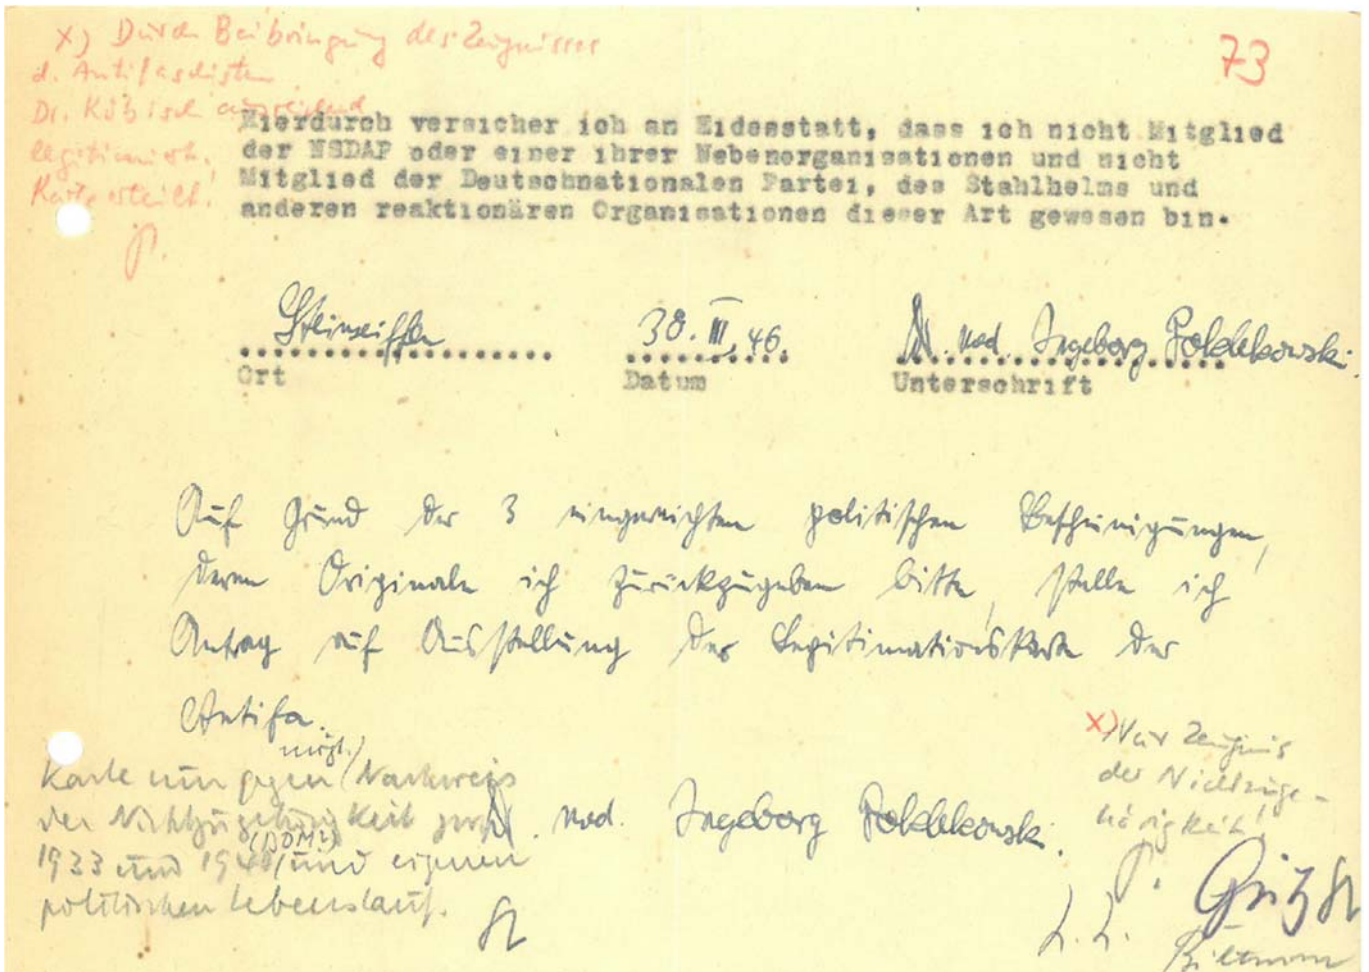 x) Durch Beibringung des Zeugnisses
d. Antifaschisten
Dr. Kübisch ausreichend
legitimiert.
Karte erteilt!
P.
73
Hierdurch versicher ich an Eidesstatt, dass ich nicht Mitglied
der NSDAP oder einer ihrer Nebenorganisationen und nicht
Mitglied der Deutschnationalen Partei, des Stahlhelms und
anderen reaktionären Organisationen dieser Art gewesen bin.
Steinseiffen 30. III. 46. Dr. med. Ingeborg
Ort Datum Unterschrift
Auf Grund der 3 eingereichten politischen Bescheinigungen,
deren Originale ich zurückzugeben bitte, stelle ich
Antrag auf Ausstellung der Legitimationskarte der
Antifa.
Karte nur gegen Nachweis
der Nichtzugehörigkeit
(BDM?)
1933 und und eigenen
politischen Lebenslauf.
Dr. med. Ingeborg
x) Nur Zeugnis
der Nichtzuge-
hörigkeit!
P.